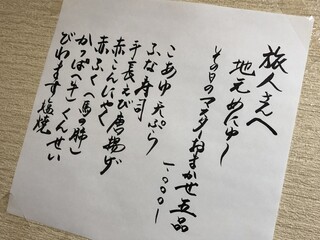 旅人さんへ
地元めにゅー
その日のマスターおまかせ五品
一、〇〇〇ー
こあゆ天ぷら
ふな寿司
手長えび唐揚げ
赤こんにゃく
赤ふく（馬の肺）
かっぱ（牛）くんせい
びわます塩焼